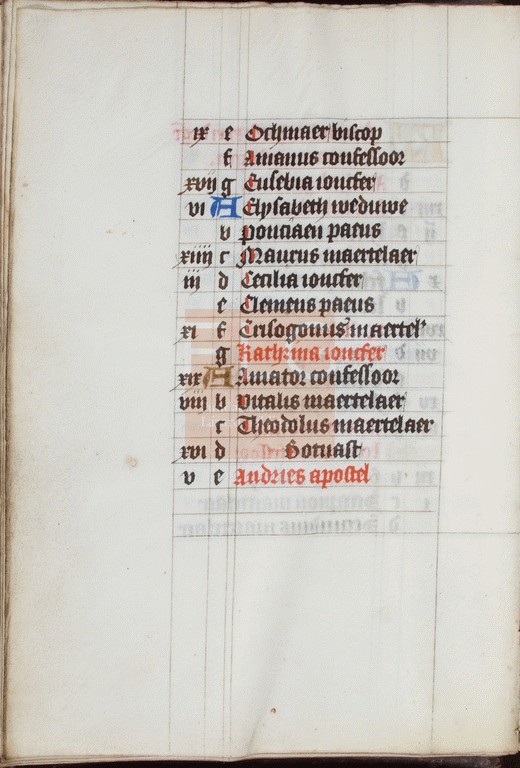 ix e Othmaer biscop
f Amanus confessoor
xvii g Eusebia ioncfer
vi A Elysabeth weduwe
b Ponciaen paeus
xiiii c Maurus maertelaer
iii d Cecilia ioncfer
e Clemens paeus
xi f Crisogonus maertel'
g Kathrina ioncfer
xix A Amator confessoor
viii b Vitalis maertelaer
c Theodolus maertelaer
xvi d Sotuast
v e Andries apostel